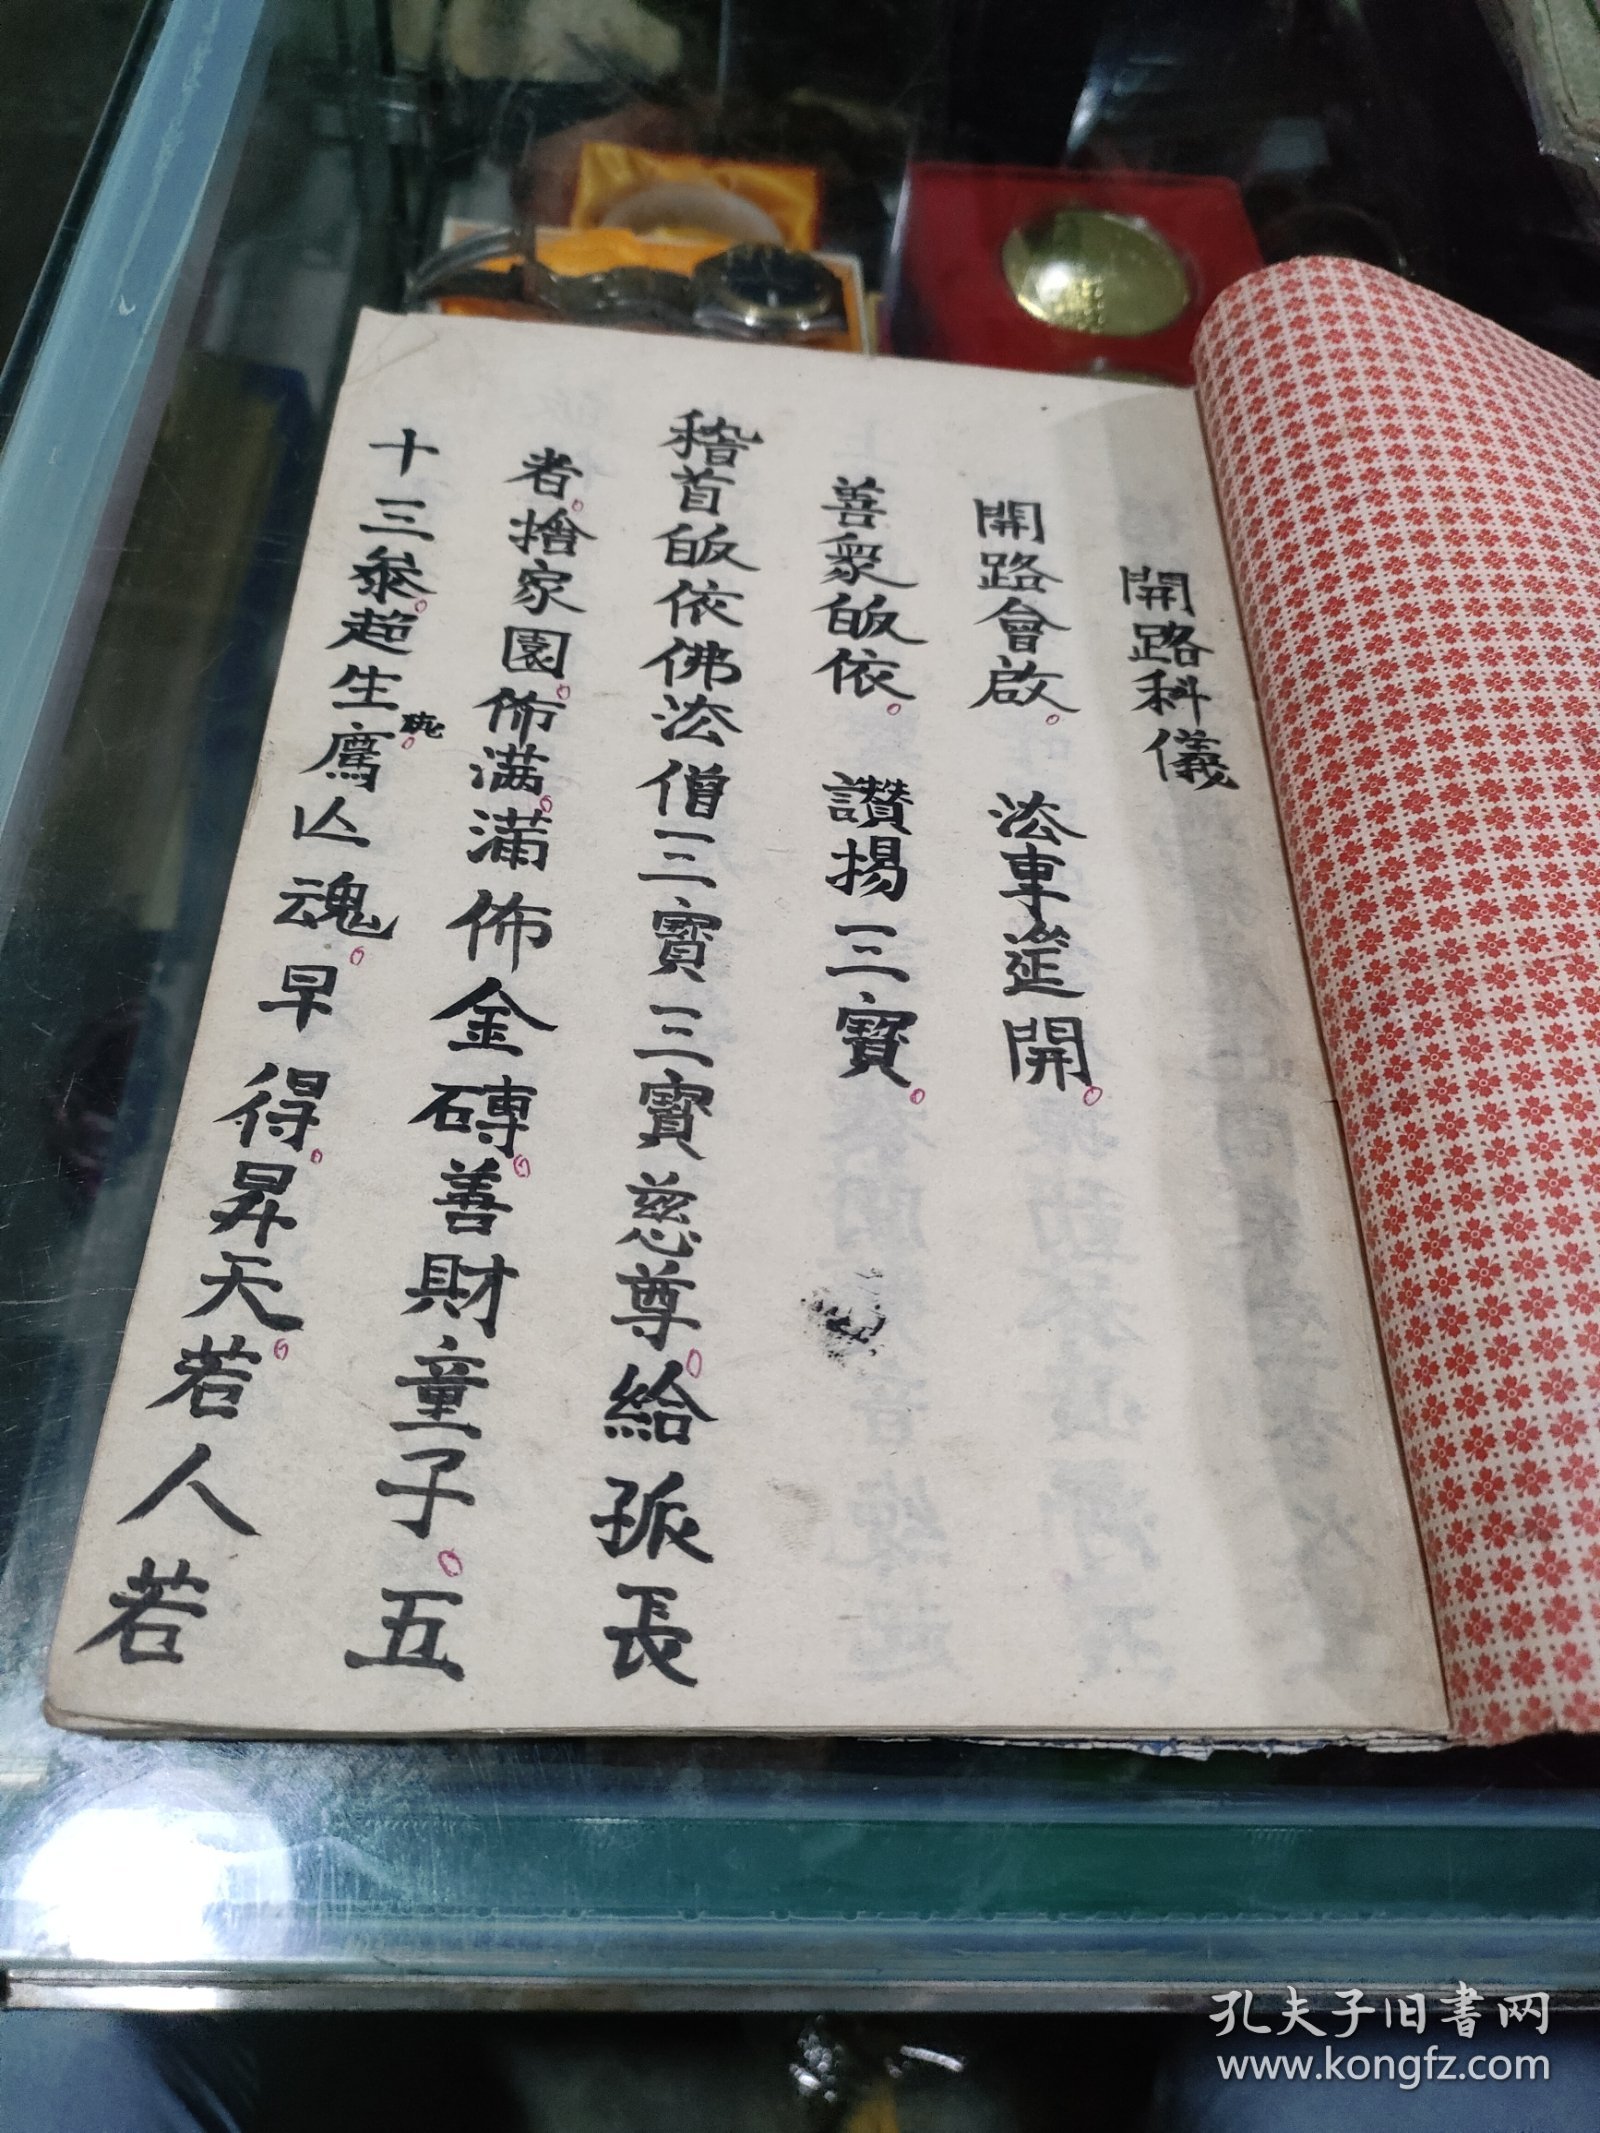 開路科儀
開路會啟 法事筵開
善衆皈依 讚揚三寳
稽首皈依佛法僧三寳三寳慈尊給孤長
者捨家園佈满滿佈金磚善財童子五
十三叅超生薦亾魂早得昇天若人若
孔夫子旧書网
www.kongfz.com